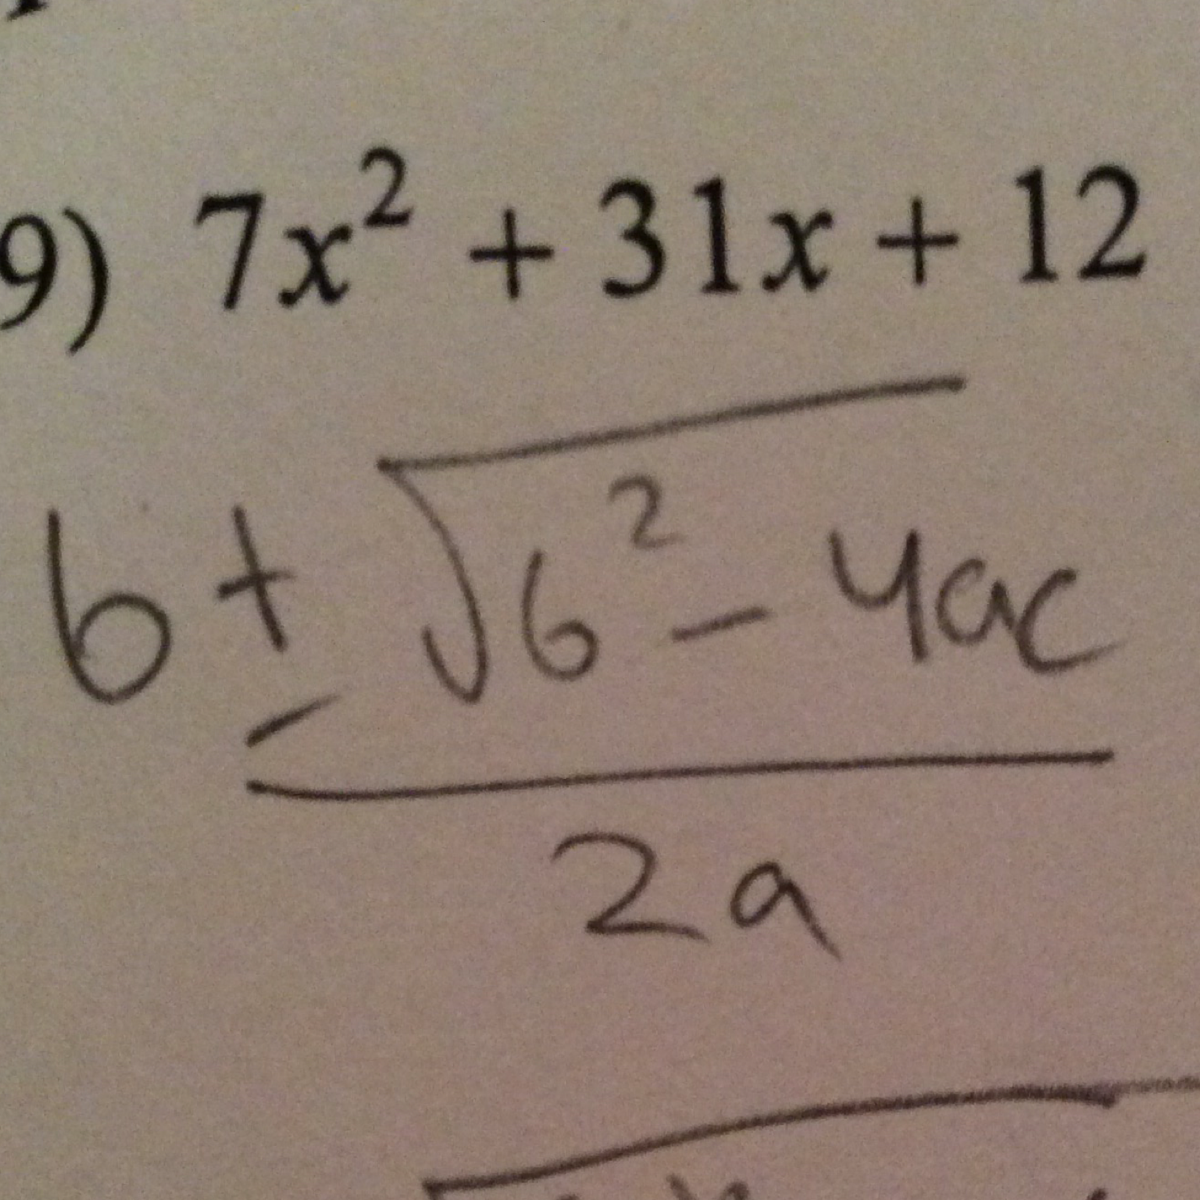 9) 7x² + 31x + 12
b ± √b² - 4ac
2a